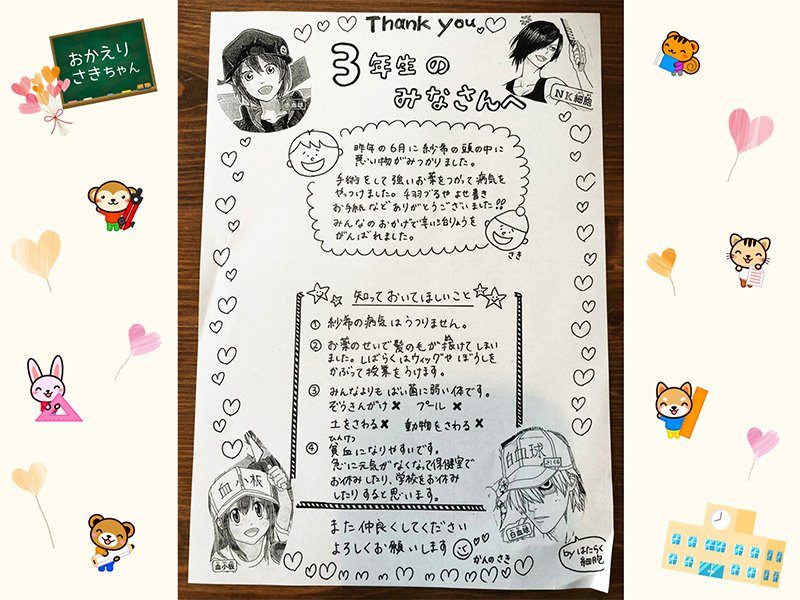 おかえり
さきちゃん
Thank you
3年生の
みなさんへ
赤血球
NK細胞
昨年の6月に紗希の頭の中に
悪い物がみつかりました。
手術をして強いお薬をつかって病気を
やっつけました。千羽づるやよせ書き
お手紙などありがとうございました!!
みんなのおかげで辛い治りょうを
がんばれました。
さき
知っておいてほしいこと
① 紗希の病気はうつりません。
② お薬のせいで髪の毛が抜けてしまい
ました。しばらくはウィッグやぼうしを
かぶって授業をうけます。
③ みんなよりもばい菌に弱い体です。
ぞうきんがけ✖ プール✖
土をさわる✖ 動物をさわる✖
ひんけつ
④ 貧血になりやすいです。
急に元気がなくなって保健室で
お休みしたり、学校をお休み
したりすると思います。
血小板
血小板
白血球
白血球
また仲良くしてください
よろしくお願いします
かんのさき
byはたらく
細胞